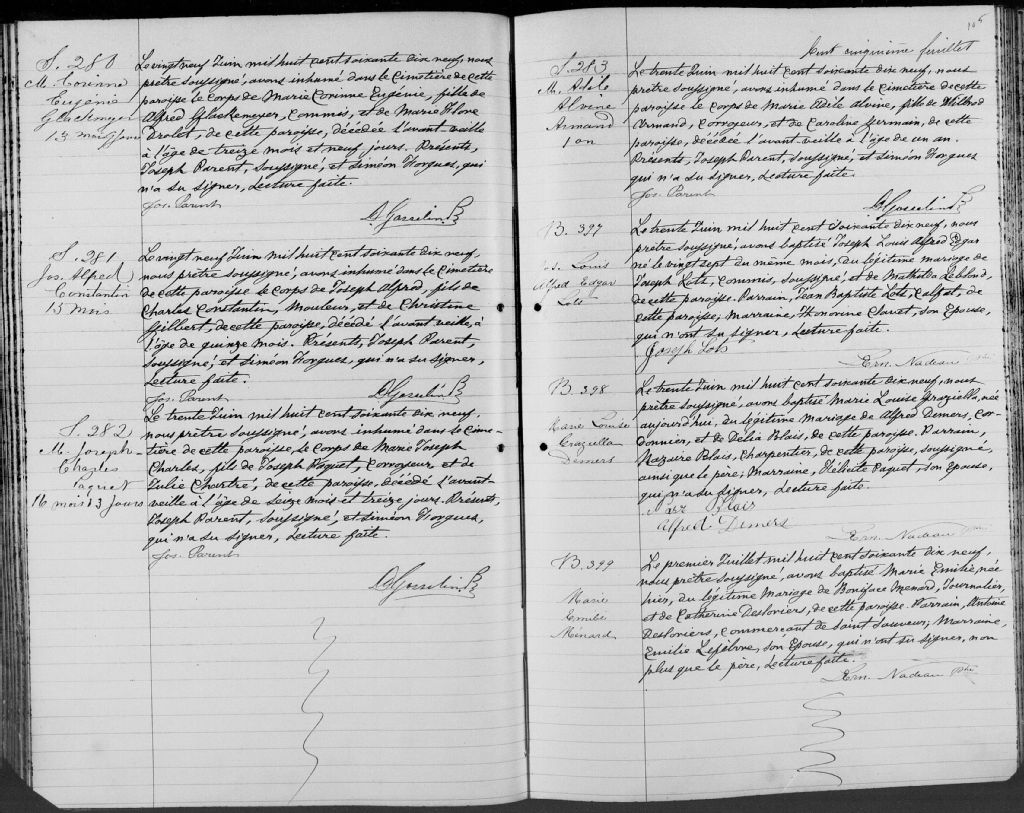 S. 280
M. Corinne
Eugénie
13 mois 9 jours
Le vingt neuf Juin mil huit cent soixante dix neuf, nous
prêtre soussigné, avons inhumé dans le cimetière de cette
paroisse le corps de Marie Corinne Eugénie, fille de
Alfred Glackemeyer, Commis, et de Marie Flore
Drolet, de cette paroisse, décédée l'avant veille
à l'âge de treize mois et neuf jours. Présents,
Joseph Parent, soussigné, et Siméon Horgues, qui
n'a su signer, Lecture faite.
Jos. Parent
Gosselin Ptr
S. 281
Jos. Alfred
Constantin
15 mois
Le vingt neuf Juin mil huit cent soixante dix neuf,
nous prêtre soussigné, avons inhumé dans le cimetière
de cette paroisse le corps de Joseph Alfred, fils de
Charles Constantin, Mouleur, et de Christine
Hilbert, de cette paroisse, décédé l'avant veille, à
l'âge de quinze mois. Présents, Joseph Parent,
soussigné, et Siméon Horgues, qui n'a su signer,
Lecture faite.
Jos. Parent
Gosselin Ptr
S. 282
M. Joseph
Charles
Paquet
16 mois 13 jours
Le trente Juin mil huit cent soixante dix neuf,
nous prêtre soussigné, avons inhumé dans le cime-
tière de cette paroisse, le corps de Marie Joseph
Charles, fils de Joseph Paquet, Corroyeur, et de
Julie Chartré, de cette paroisse, décédé l'avant-
veille à l'âge de seize mois et treize jours. Présents,
Joseph Parent, soussigné, et Siméon Horgues,
qui n'a su signer, Lecture faite.
Jos. Parent
Gosselin Ptr
105
Cent cinquième feuillet
S. 283
M. Adèle
Alvine
Armand
1 an
Le trente Juin mil huit cent soixante dix neuf, nous
prêtre soussigné, avons inhumé dans le cimetière de cette
paroisse le corps de Marie Adèle Alvine, fille de
Armand, Corroyeur, et de Caroline Germain, de cette
paroisse, décédée l'avant veille à l'âge de un an.
Présents, Joseph Parent, soussigné, et Siméon Horgues
qui n'a su signer, Lecture faite.
Jos. Parent
Gosselin Ptr
B. 397
Jos. Louis
Alfred Edgar
Lots
Le trente Juin mil huit cent soixante dix neuf, nous
prêtre soussigné, avons baptisé Joseph Louis Alfred Edgar
né le vingt sept du même mois, du légitime mariage de
Joseph Lots, commis, soussigné, et de Mathilda Leblond,
de cette paroisse. Parrain, Jean Baptiste Lots, Calfat, de
cette paroisse; marraine, Honorine Clavet, son Epouse,
qui n'ont su signer, Lecture faite.
Joseph Lots
Ern. Nadeau Ptre
B. 398
Marie Louise
Graziella
Demers
Le trente Juin mil huit cent soixante dix neuf, nous
prêtre soussigné, avons baptisé Marie Louise Graziella, née
aujourd'hui, du légitime Mariage de Alfred Demers, Cor-
donnier, et de Délia Blais, de cette paroisse. Parrain,
Nazaire Blais, Charpentier, de cette paroisse, soussigné,
ainsi que le père; Marraine, Félicité Paquet son Epouse,
qui n'a su signer, Lecture faite.
Nazr Blais
Alfred Demers
Ern. Nadeau Ptre
B. 399
Marie
Emilie
Ménard
Le premier Juillet mil huit cent soixante dix neuf,
nous prêtre soussigné, avons baptisé Marie Emilie, née
hier, du légitime Mariage de Boniface Menard, Journalier,
et de Catherine Desloriers, de cette paroisse. Parrain, Antoine
Desloriers, Commerçant de Saint Sauveur; Marraine,
Emilie Lefebvre, son Epouse, qui n'ont su signer, non
plus que le père, Lecture faite.
Ern. Nadeau Ptre